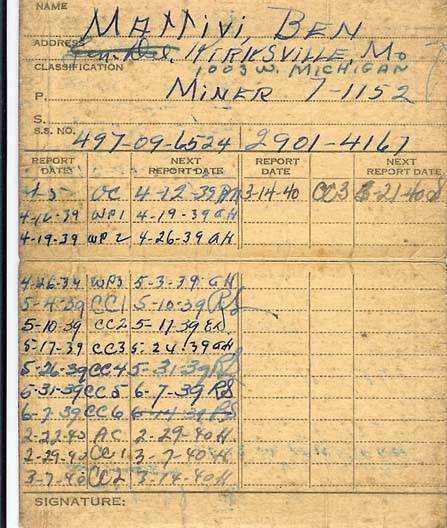 NAME
MATTIVI, BEN
ADDRESS Gen. Del. KIRKSVILLE, MO
1003 W. MICHIGAN
CLASSIFICATION
P. MINER 7-1152
S.
S.S. NO. 497-09-6524 2901-4167
REPORT DATE NEXT REPORT DATE REPORT DATE NEXT REPORT DATE
4-5 UC 4-12-39 3-14-40 CC3 3-21-40
4-12-39 WP1 4-19-39 GH
4-19-39 WP2 4-26-39 GH
4-26-39 WP3 5-3-39 GH
5-4-39 CC1 5-10-39 RS
5-10-39 CC2 5-17-39
5-17-39 CC3 5-24-39 GH
5-26-39 CC4 5-31-39 RS
5-31-39 CC5 6-7-39 RS
6-7-39 CC6 6-14-39 RS
2-22-40 AC 2-29-40 H.
2-29-40 CC1 3-7-40 H
3-7-40 CC2 3-14-40 H.
SIGNATURE: